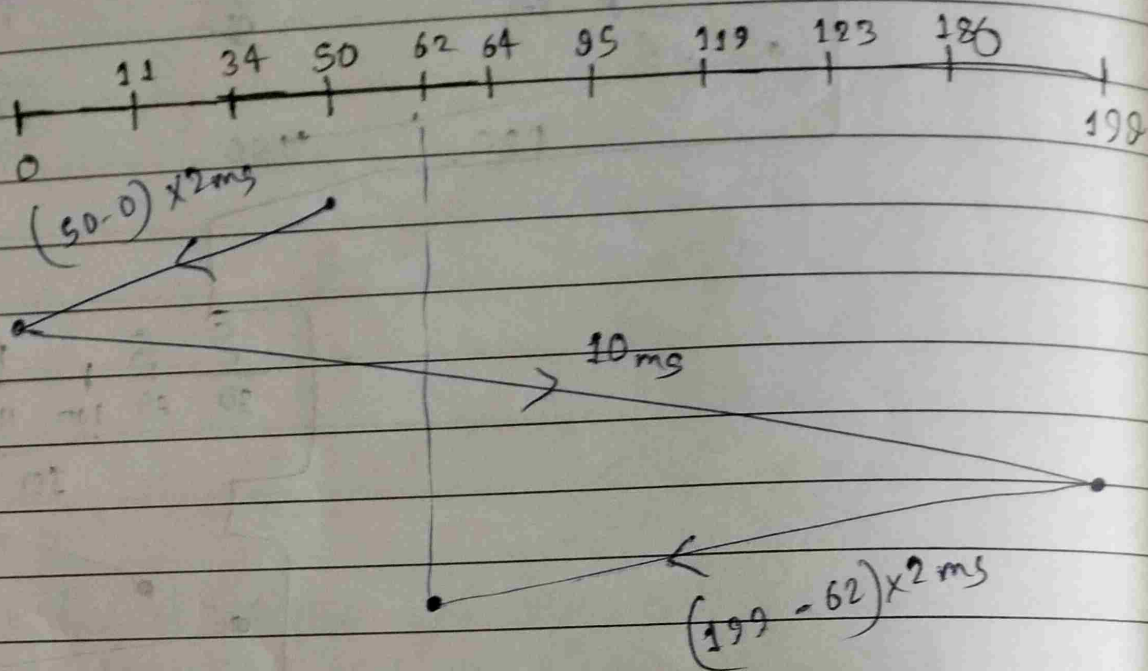 11 34 50 62 64 95 119 123 180
0 199
(50-0) x2ms
10ms
(199 - 62) x2 ms